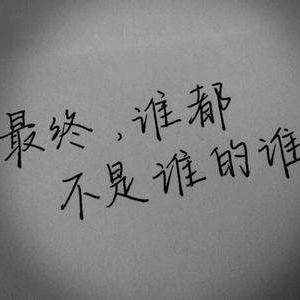 最终,谁都
不是谁的谁